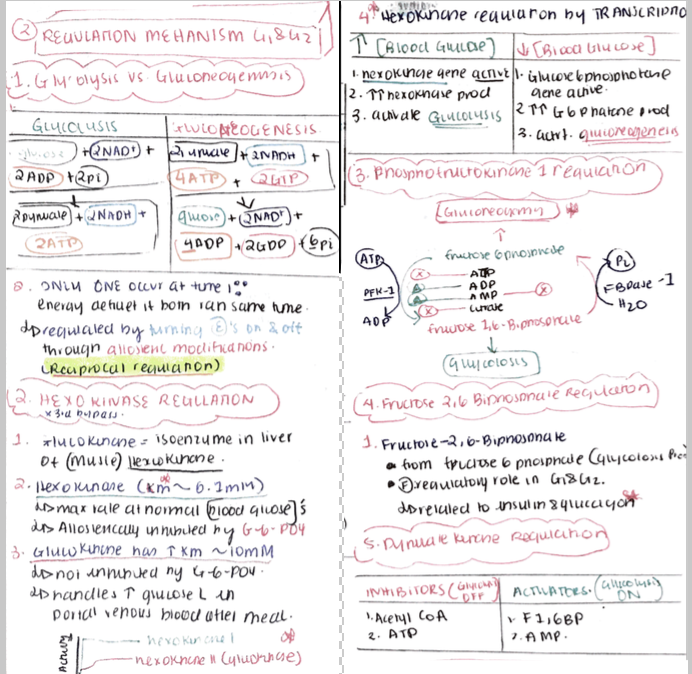 ② REGULATION MEHANISM G1&G2
1. Glycolysis vs. Gluconeogenesis
GLYCOLYSIS
glucose + 2NAD+ +
2ADP + 2Pi
2pyruvate + 2NADH +
2ATP
GLUCONEOGENESIS
2Pyruvate + 2NADH +
4ATP + 2GTP
glucose + 2NAD+ +
4ADP + 2GDP + 6Pi
ONLY ONE occur at time
energy deficit if both ran same time.
regulated by turning Ⓔ's on & off
through allosteric modifications.
(Reciprocal regulation)
2. HEXOKINASE REGULATION
*3rd bypass.
1. *Glucokinase = isoenzyme in liver
of (muscle) Hexokinase.
2. Hexokinase (km ~ 0.1mM)
max rate at normal [blood glucose]'s
Allosterically inhibited by G-6-PO4
3. Glucokinase has ↑ Km ~10mM
not inhibited by G-6-PO4.
handles ↑ glucose L in
portal venous blood after meal.
Activity
hexokinase I
hexokinase II (glucokinase)
4* Hexokinase regulation by TRANSCRIPTIO
↑ [Blood Glucose]
1. hexokinase gene active
2. ↑↑ hexokinase prod
3. activate Glycolysis
↓ [Blood Glucose]
1. Glucose 6 phosphatase
gene active.
2 ↑↑ G6phatase prod
3. activ. gluconeogenesis
3. Phosphofructokinase 1 regulation
Gluconeogenesis
fructose 6 phosphate
ATP
PFK-1
ADP
x ATP
ADP
AMP x
x citrate
Pi
FBPase-1
H2O
fructose 1,6-Bisphosphate
Glycolysis
4. Fructose 2,6 Bisphosphate Regulation
1. Fructose-2,6-Bisphosphate
from fructose 6 phosphate (glycolysis
regulatory role in G1&G2.
related to insulin & glucagon
5. Pyruvate Kinase Regulation
INHIBITORS (Glycolysis OFF)
1. Acetyl CoA
2. ATP
ACTIVATORS. (Glycolysis ON)
1. F1,6BP
2. AMP.